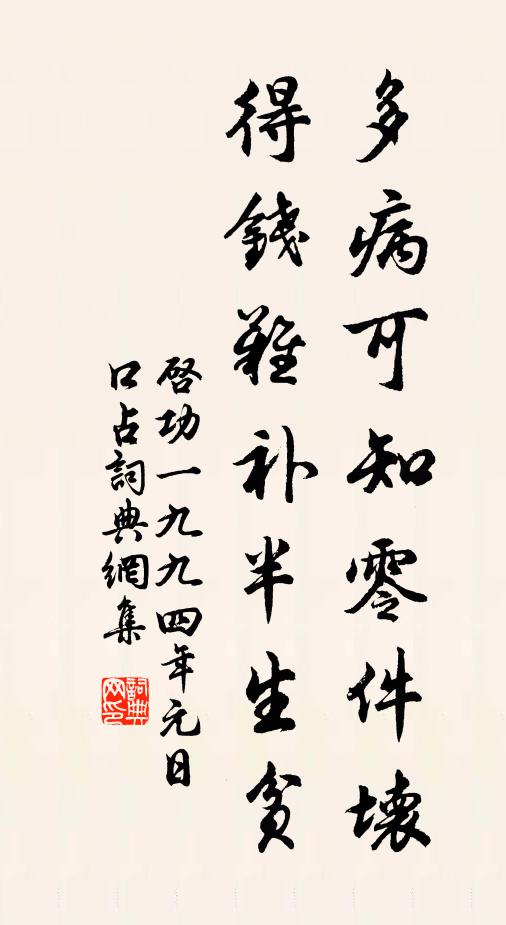 多病可知零件壞
得錢難补半生貧
启功一九九四年元日
口占詞典網集
詞典網印